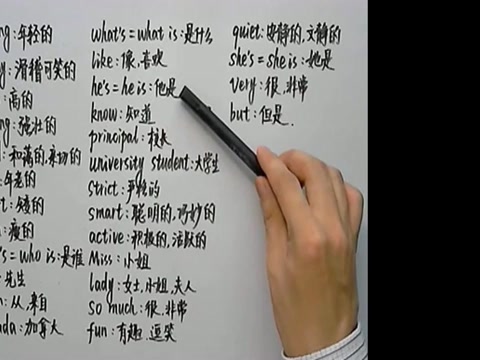 ng:年轻的
y:滑稽可笑的
:高的
ng:强壮的
:和蔼的,亲切的
:年老的
t:矮的
:瘦的
's=who is:是谁
:先生
:从,来自
ada:加拿大
what's=what is:是什么
like:像,喜欢
he's=he is:他是
know:知道
principal:校长
university student:大学生
strict:严格的
smart:聪明的,巧妙的
active:积极的,活跃的
Miss:小姐
lady:女士,小姐,夫人
so much:很,非常
fun:有趣,逗笑
quiet:安静的,文静的
she's=she is:她是
very:很,非常
but:但是.